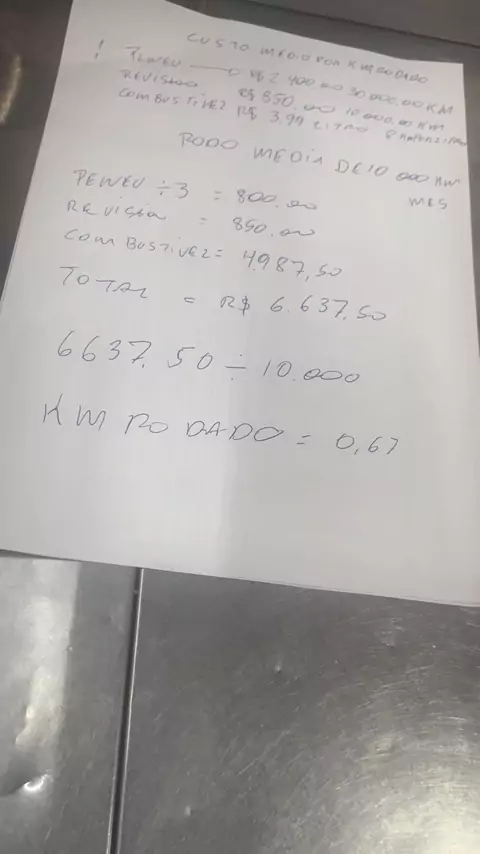 CUSTO MEDIO POR KM RODADO
! PENEU → R$ 2 400.00 30.000.00 KM
REVISÃO R$ 850,00 10.000.00 KM
COMBUSTIVEL R$ 3.99 LITRO 8
RODO MEDIA DE 10 000 KM
MES
PENEU ÷ 3 = 800.00
REVISÃO = 850.00
COMBUSTIVEL = 4987,50
TOTAL = R$ 6.637.50
6637.50 ÷ 10.000
KM RODADO = 0,67